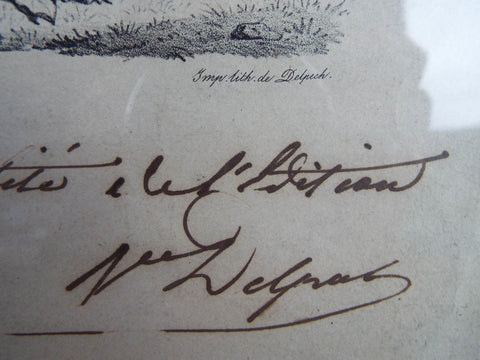 Imp. lith. de Delpech.
ité de l'Edition
Vve Delprat